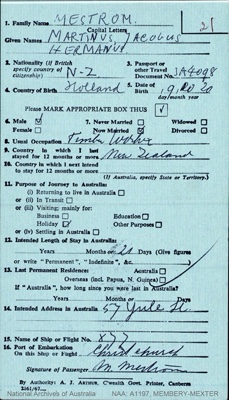 1. Family Name MESTROM.
Capital Letters
Given Names MARTINUS JACOBUS
HERMANUS
21
2. Nationality (if British
specify country of
citizenship) N-Z
3. Passport or
other Travel
Document No.
4. Country of Birth Holland
5. Date of
Birth
day/month year
Please MARK APPROPRIATE BOX THUS ✓
6. Male ✓
Female
7. Never Married
Now Married
Widowed
Divorced
8. Usual Occupation Timber Worker
9. Country in which I last
stayed for 12 months or more New Zealand
10. Country in which I next intend
to stay for 12 months or more
(If Australia, specify State or Territory.)
11. Purpose of Journey to Australia:
(i) Returning to live in Australia
or (ii) In Transit
or (iii) Visiting; mainly for:
Business
Education
Holiday
Other Purposes
or (iv) Settling in Australia
12. Intended Length of Stay in Australia:
Years Months Days (Give figures
or write "Permanent", "Indefinite", &c.
13. Last Permanent Residence:
Australia
Overseas (incl. Papua, N. Guinea)
If "Australia", how long since you were last in Australia?
Years Months Days
14. Intended Address in Australia 57 Yule St.
15. Name of Ship or Flight No.
16. Port of Embarkation
On this Ship or Flight Christchurch
Signature of Passenger M. Mestrom
By Authority: A. J. Arthur, C'wealth Govt. Printer, Canberra
National Archives of Australia
NAA: A1197, MEMBERY-MEXTER